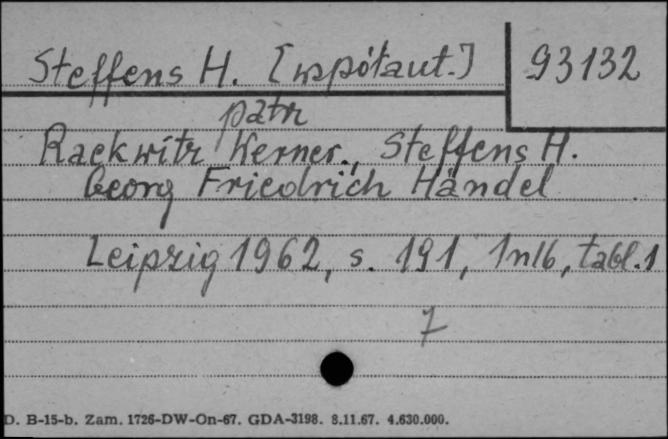 Steffens H. [współaut.] 93132
patrz
Rackwitz Werner., Steffens H.
Georg Friedrich Händel
Leipzig 1962, s. 191, 1nlb, tabl. 1
7
D. B-15-b. Zam. 1726-DW-On-67. GDA-3198. 8.11.67. 4.630.000.